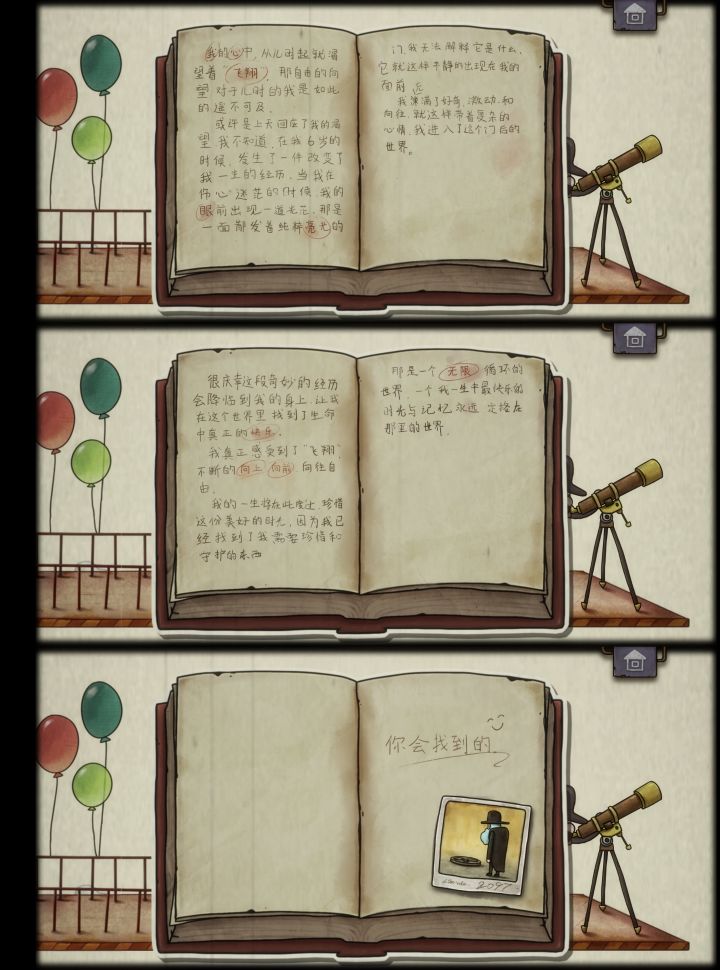 我的心中，从儿时起就渴
望着“飞翔”，那自由的向
望对于儿时的我是如此
的遥不可及。
或许是上天回应了我的渴
望，我不知道，在我6岁的
时候，发生了一件改变了
我一生的经历。当我在
伤心迷茫的时候，我的
眼前出现一道光芒，那是
一面散发着纯粹亮光的
门，我无法解释它是什么，
它就这样平静的出现在我的
面前
我演满了好奇、激动、和
向往，就这样带着复杂的
心情，我进入了这个门后的
世界。
很庆幸这段奇妙的经历
会降临到我的身上，让我
在这个世界里找到了生命
中真正的快乐。
我真正感受到了“飞翔”，
不断的向上 向前 向往自
由。
我的一生将在此度过，珍惜
这份美好的时光，因为我已
经找到了我需要珍惜和
守护的东西
那是一个无限循环的
世界，一个我一生中最快乐的
时光与记忆永远定格在
那里的世界。
你会找到的
2097